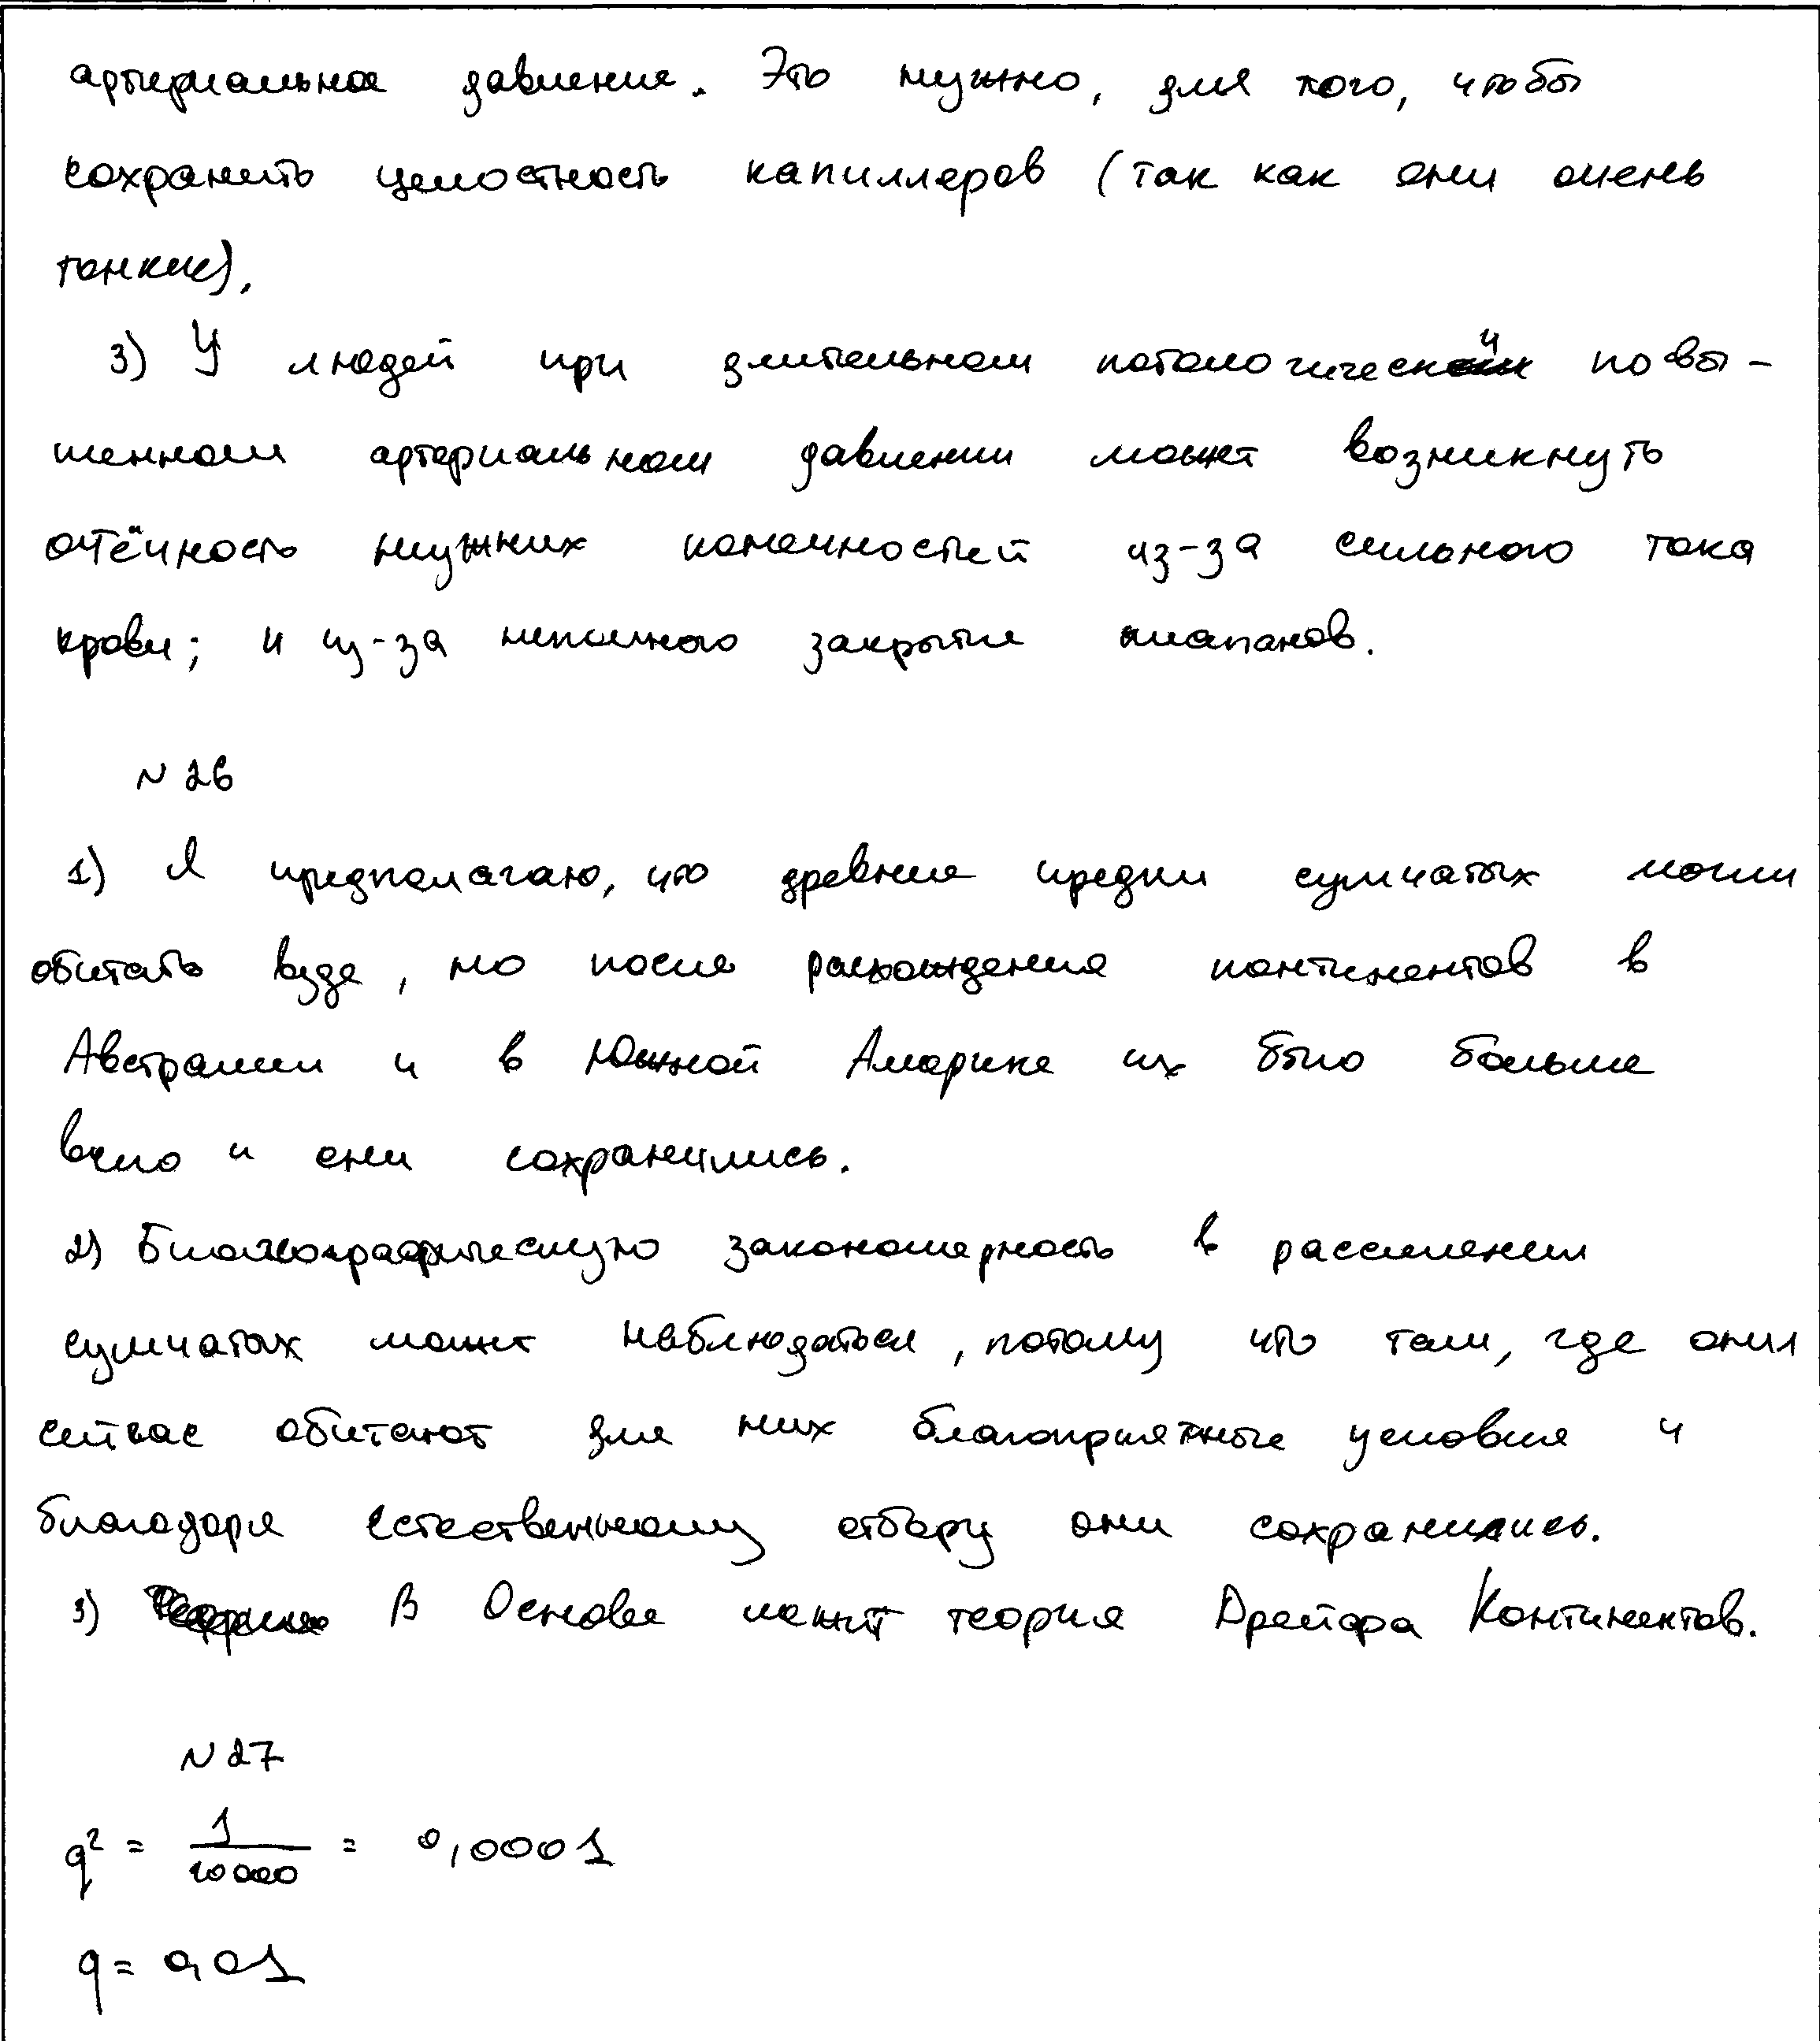 артериальное давление. Это нужно, для того, чтобы
сохранить целостность капилляров (так как они очень
тонкие).
3) У людей при длительном патологически повы-
шенном артериальном давлении может возникнуть
отёчность нижних конечностей из-за сильного тока
крови; и из-за неполного закрытия клапанов.
N 26
1) Я предполагаю, что древние предки сумчатых могли
обитать везде, но после расхождения континентов в
Австралии и в Южной Америке их было больше
всего и они сохранились.
2) Биогеографическую закономерность в расселении
сумчатых может наблюдаться, потому что там, где они
сейчас обитают для них благоприятные условия и
благодаря естественному отбору они сохранились.
3) В Основе лежит теория Дрейфа Континентов.
N 27
q² = 1/10000 = 0,0001
q = 0,01